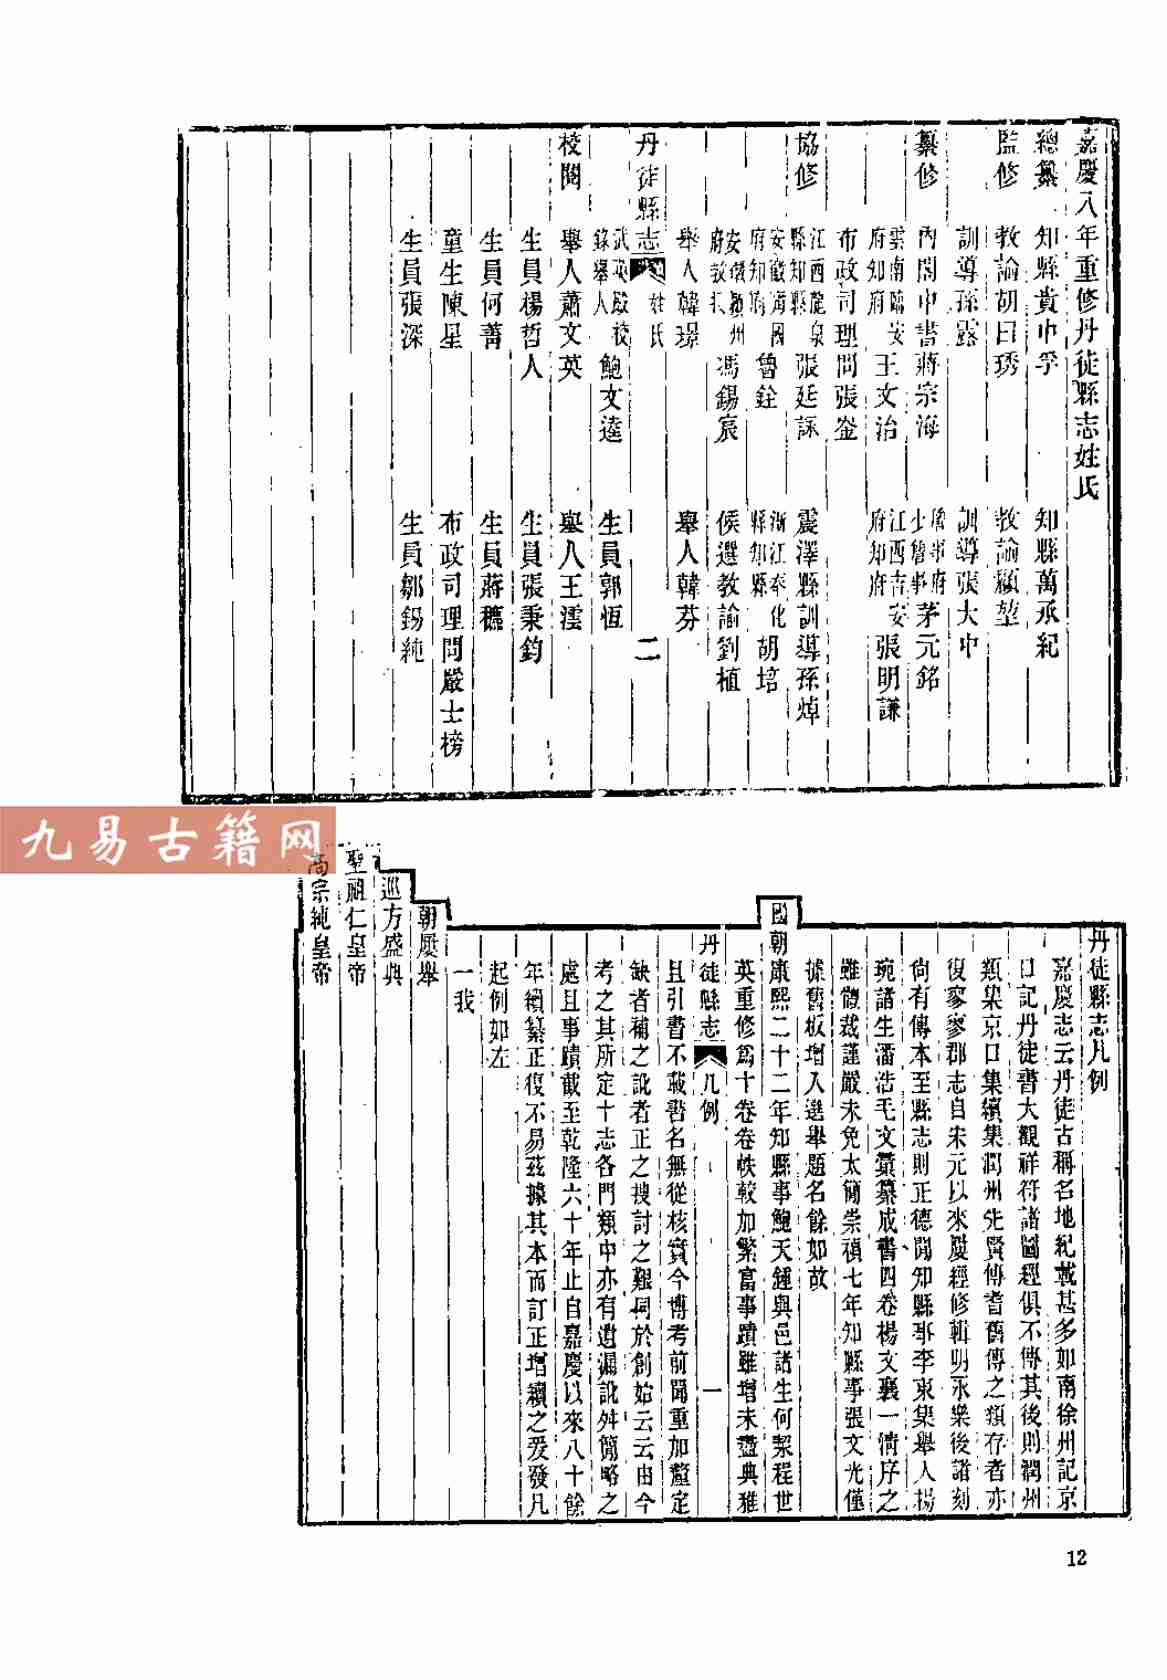 嘉慶八年重修丹徒縣志姓氏
總纂 知縣貴中孚 知縣萬承紀
監修 教諭胡日琇 教諭顧堃
訓導孫露 訓導張大中
纂修 內閣中書蔣宗海 詹事府少詹事茅元銘
雲南臨安府知府王文治 江西吉安府知府張明謙
布政司理問張崟
協修 江西龍泉縣知縣張廷詠 震澤縣訓導孫焯
安徽寧國府知府魯銓 浙江奉化縣知縣胡培
安徽潁州府教授馮錫宸 候選教諭劉植
舉人韓璟 舉人韓芬
丹徒縣志 姓氏 二
武英殿校錄舉人鮑文逵 生員郭恆
校閱 舉人蕭文英 舉人王澐
生員楊哲人 生員張秉鈞
生員何菁 生員蔣
童生陳星 布政司理問嚴士榜
生員張深 生員鄒錫純
丹徒縣志凡例
嘉慶志云丹徒古稱名地紀載甚多如南徐州記京
口記丹徒書大觀祥符諸圖經俱不傳其後則潤州
類集京口集續集潤州先賢傳耆舊傳之類存者亦
復寥寥郡志自宋元以來屢經修輯明永樂後諸刻
尚有傳本至縣志則正德間知縣事李東集舉人楊
琬諸生潘浩毛文纂成書四卷楊文襄一清序之
雖體裁謹嚴未免太簡崇禎七年知縣事張文光僅
據舊板增入選舉題名餘如故
國朝康熙二十二年知縣事鮑天鍾與邑諸生何絜程世
英重修為十卷卷帙較加繁富事蹟雖增未盡典雅
丹徒縣志 凡例 一
且引書不載書名無從核實今博考前聞重加釐定
缺者補之訛者正之搜討之艱同於創始云云由今
考之其所定十志各門類中亦有遺漏訛舛簡略之
處且事蹟截至乾隆六十年止自嘉慶以來八十餘
年續纂正復不易茲據其本而訂正增續之爰發凡
起例如左
一我
朝屢舉
巡方盛典
聖祖仁皇帝
高宗純皇帝
九易古籍网
12